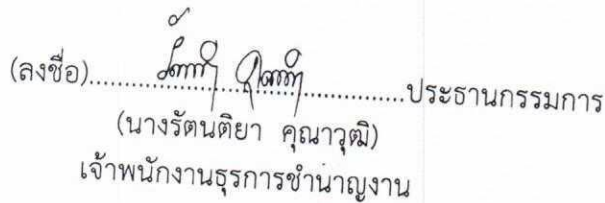 (ลงชื่อ)....................................................ประธานกรรมการ
(นางรัตนติยา คุณาวุฒิ)
เจ้าพนักงานธุรการชำนาญงาน